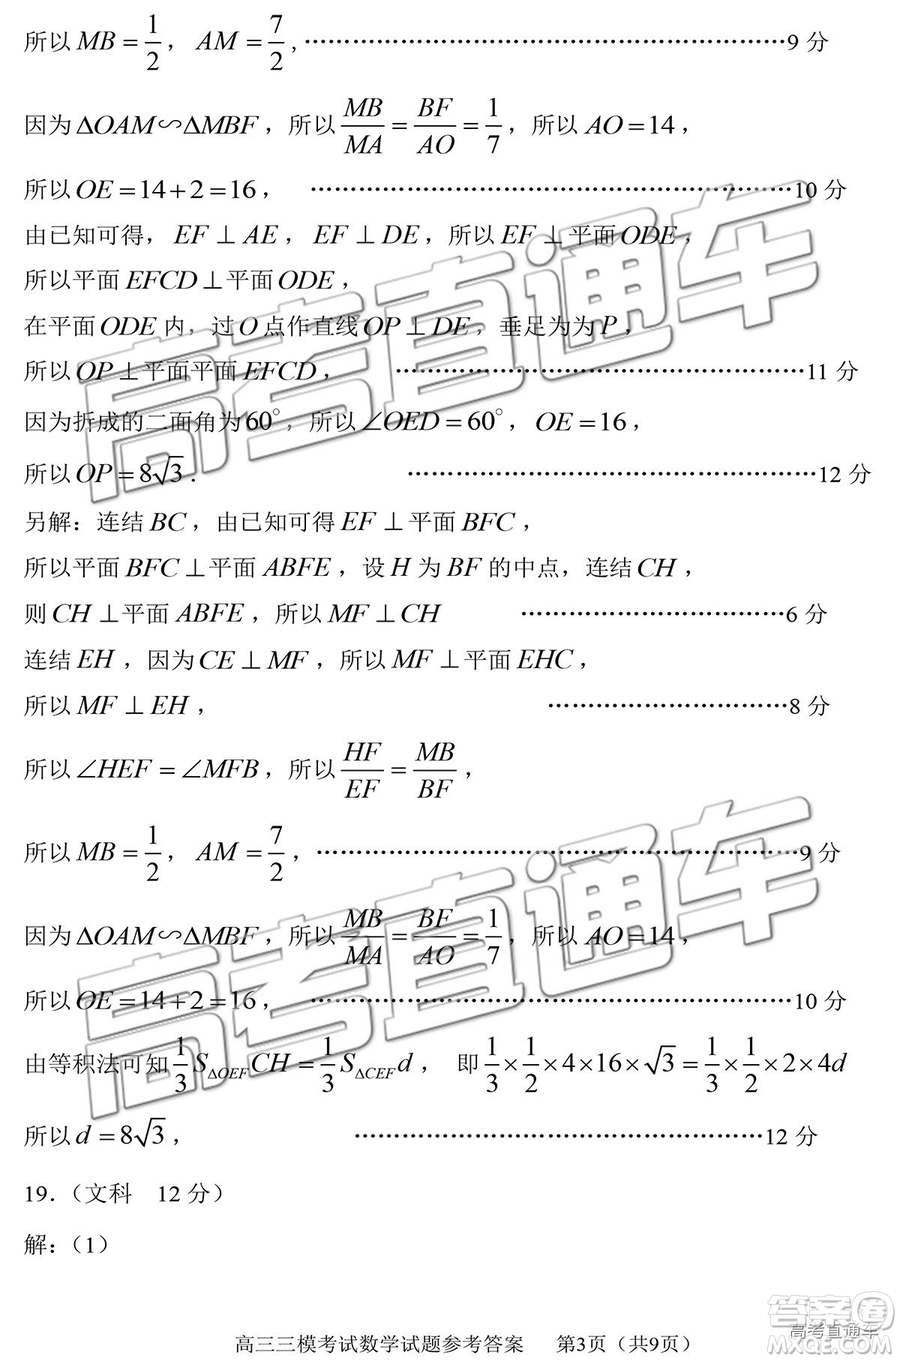 所以 MB = 1/2 ， AM = 7/2 ,………………………………………………………9 分
因为 ΔOAM∽ΔMBF ，所以 MB/MA = BF/AO = 1/7 ，所以 AO = 14 ，
所以 OE = 14 + 2 = 16 ， ………………………………………………………10 分
由已知可得， EF ⊥ AE ， EF ⊥ DE ，所以 EF ⊥平面 ODE ，
所以平面 EFCD ⊥平面 ODE ，
在平面 ODE 内，过 O 点作直线 OP ⊥ DE ，垂足为为 P ，
所以 OP ⊥平面平面 EFCD ， ………………………………………………11 分
因为折成的二面角为 60° ，所以 ∠OED = 60° ， OE = 16 ，
所以 OP = 8√3 . ………………………………………………12 分
另解：连结 BC ，由已知可得 EF ⊥平面 BFC ，
所以平面 BFC ⊥平面 ABFE ，设 H 为 BF 的中点，连结 CH ，
则 CH ⊥平面 ABFE ，所以 MF ⊥ CH ……………………………6 分
连结 EH ，因为 CE ⊥ MF ，所以 MF ⊥平面 EHC ，
所以 MF ⊥ EH ， …………………………8 分
所以 ∠HEF = ∠MFB ，所以 HF/EF = MB/BF ，
所以 MB = 1/2 ， AM = 7/2 ，………………………………………………………9 分
因为 ΔOAM∽ΔMBF ，所以 MB/MA = BF/AO = 1/7 ，所以 AO = 14 ，
所以 OE = 14 + 2 = 16 ， ………………………………………………………10 分
由等积法可知 1/3 S_ΔOEF CH = 1/3 S_ΔCEF d ， 即 1/3 × 1/2 × 4 × 16 × √3 = 1/3 × 1/2 × 2 × 4d
所以 d = 8√3 ， ………………………………………………12 分
19．（文科 12 分）
解：（1）
高三三模考试数学试题参考答案 第3页（共9页）
高考直通车
高考直通车
答案圈
高考直通车
MXQE.COM